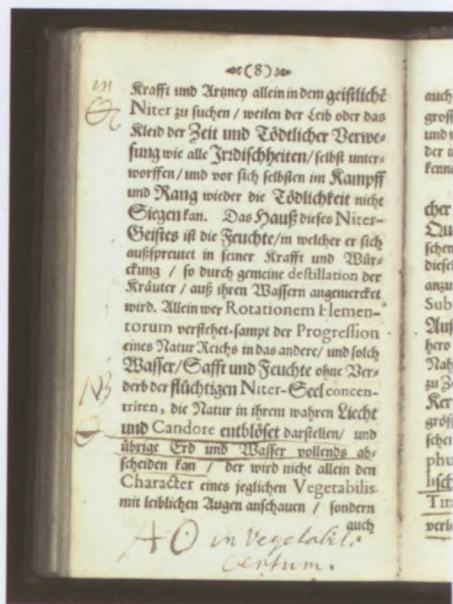 (8)
in
Krafft und Artzney allein in dem geistlichē
Niter zu suchen / weilen der Leib oder das
Kleid der Zeit und Tödtlicher Verwe-
sung wie alle Irꝛdischheiten / selbst unter-
worffen / und vor sich selbsten im Kampff
und Rang wieder die Tödlichkeit nicht
Siegen kan. Das Hauß dieses Niter-
Geistes ist die Feuchte / in welcher er sich
außspreutet in seiner Krafft und Wür-
ckung / so durch gemeine destillation der
Kräuter / auß ihren Wassern angemercket
wird. Allein wer Rotationem Elemen-
torum verstehet sampt der Progression
eines Natur Reichs in das andere / und solch
Wasser / Safft und Feuchte ohne Ver-
derb der flüchtigen Niter-Seel concen-
NB
triren, die Natur in ihrem wahren Liecht
und Candore entblöset darstellen / und
übrige Erd und Wasser vollends ab-
scheiden kan / der wird nicht allein den
Character eines jeglichen Vegetabilis
mit leiblichen Augen anschauen / sondern
auch
in Vegetabili
certum.
auch
gross
und
der
kenne
cher
Qu
schen
diesel
anzu
Sub
Auß
hero
Nah
zu Z
Ker
gröss
schei
phu
lisch
Tin
verle